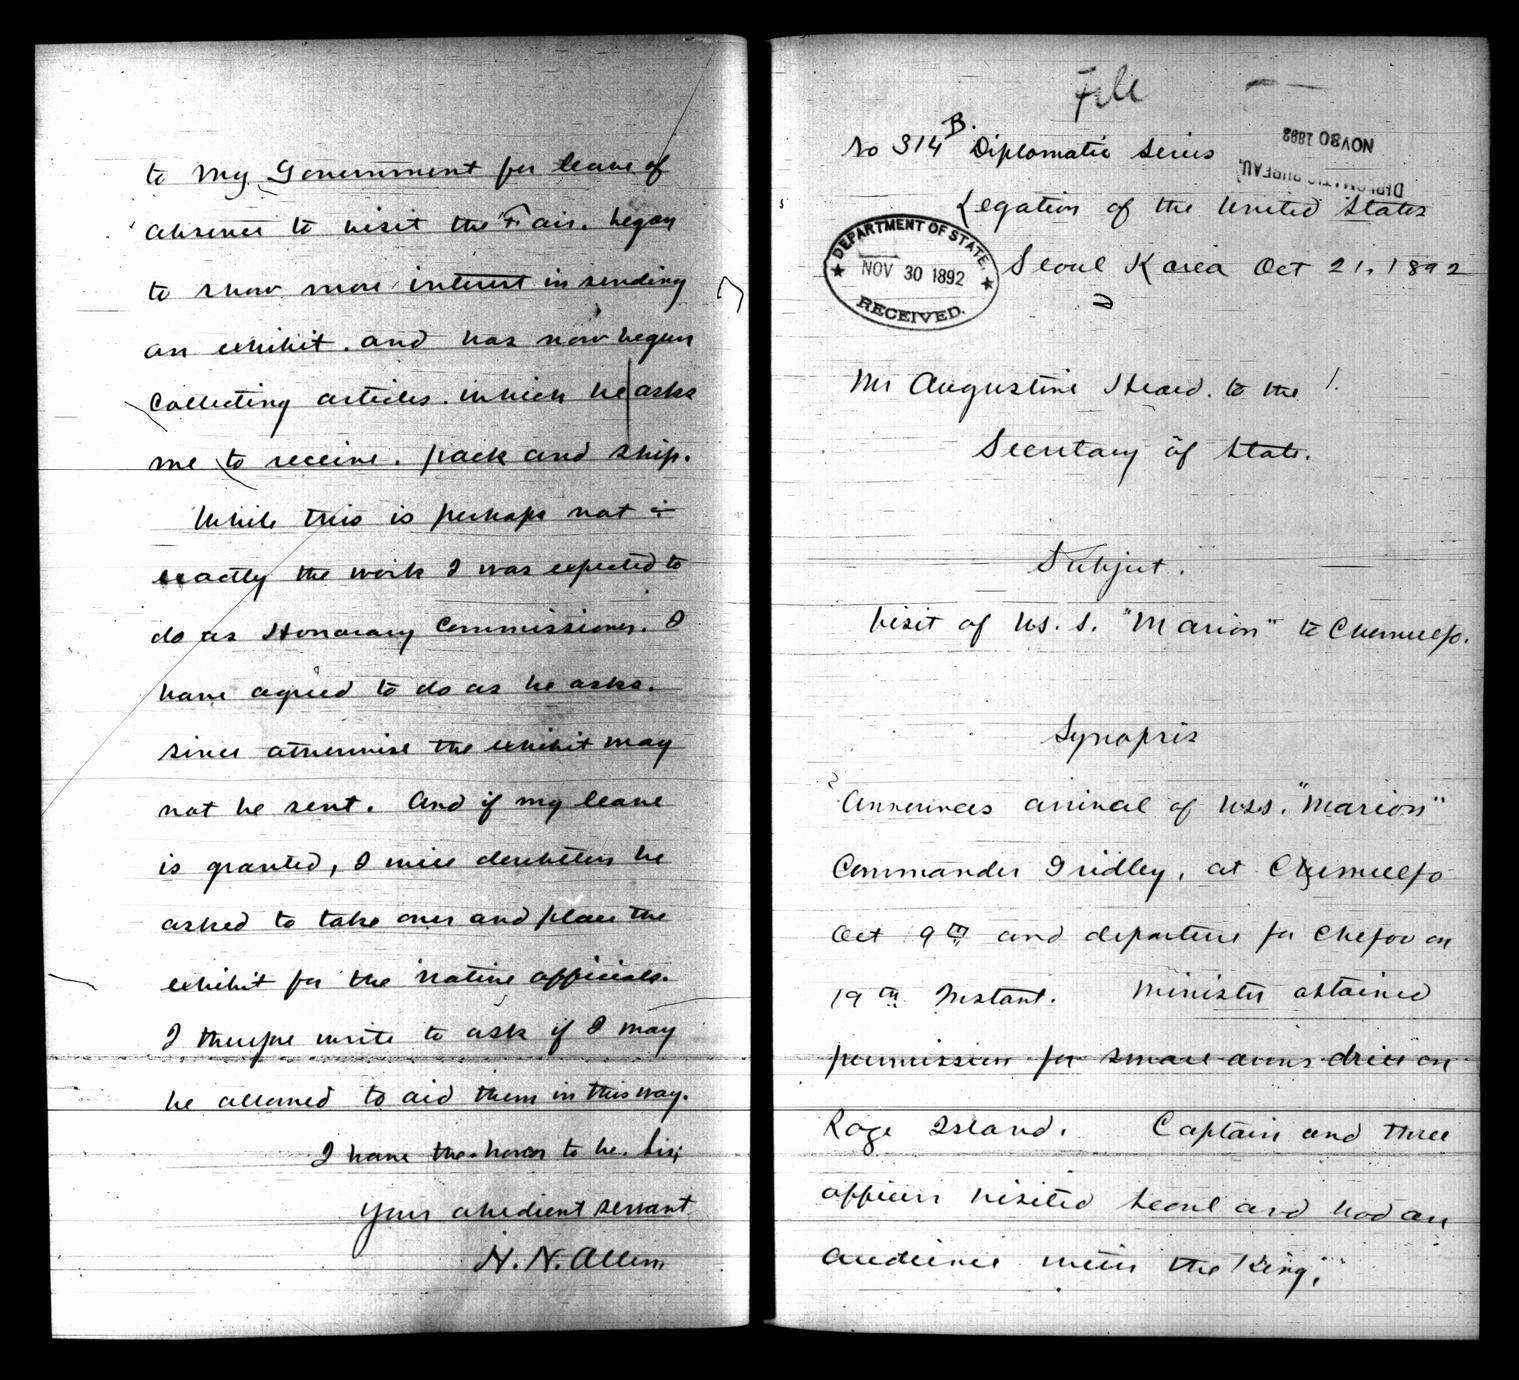 to my Government for leave of
absence to visit the "Fair. began
to show more interest in sending
an exhibit. and has now begun
collecting articles. which he asks
me to receive. pack and ship.
While this is perhaps not
exactly the work I was expected to
do as Honorary Commissioner. I
have agreed to do as he asks.
since otherwise the exhibit may
not be sent. And if my leave
is granted, I will doubtless be
asked to take over and place the
exhibit for the native officials.
I therefore write to ask if I may
be allowed to aid them in this way.
I have the honor to be. Sir;
Your obedient servant
H. N. Allen
File
No 314 B. Diplomatic Series
DIPLOMATIC BUREAU,
NOV 30 1892
Legation of the United States
DEPARTMENT OF STATE,
NOV 30 1892
RECEIVED.
Seoul Korea Oct 21, 1892
Mr Augustine Heard. to the
Secretary of State.
Subject.
Visit of U.S. S. "Marion" to Chemulpo.
Synopsis
Announces arrival of U.S.S. "Marion"
Commander Gridley, at Chemulpo
Oct 9th and departure for Chefoo on
19th Instant. Minister obtained
permission for small arms drill on
Roze Island. Captain and three
officers visited Seoul and had an
audience with the King.